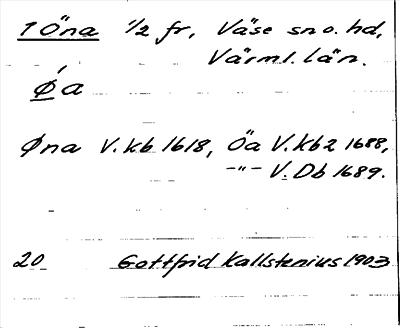 1 Öna 1/2 fr, Väse sn o. hd,
Värml. län.
Ǿa
Øna V. kb 1618, Öa V. kb 2 1688,
-"- V. Db 1689.
20 Gottfrid Kallstenius 1903